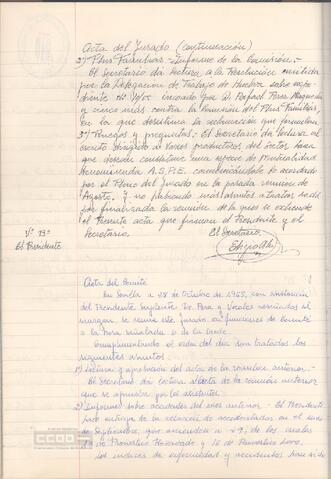 Acta del Jurado (continuación)
2) Plus Familiar.- Informe de la Comisión.-
El Secretario da lectura a la Resolución emitida
por la Delegación de Trabajo de Huelva sobre expe-
diente incoado por D. Rafael Pérez
y cinco más contra la Comisión del Plus Familiar,
en la que desestima la reclamación que formulan.
3) Ruegos y preguntas.- El Secretario da lectura al
escrito dirigido a varios productores del Sector para
que deseen constituir una especie de Mutualidad
denominada A.S.P.E. comunicándole lo acordado
por el Pleno del Jurado en la pasada reunión de
Agosto. Y no habiendo más asuntos a tratar se da
por finalizada la reunión de la que se extiende
el presente acta que firman el Presidente y el
Secretario.
Vº Bº
El Presidente
El Secretario
Acta del Comité
En Sevilla a 28 de Octubre de 1965, con asistencia
del Presidente Suplente Sr. Pera y Vocales reseñados al
margen, se reúne este Jurado en funciones de Comité
a la hora señalada de la tarde.
Cumplimentando el orden del día son tratados los
siguientes asuntos:
1º) Lectura y aprobación del acta de la reunión anterior.-
El Secretario da lectura al acta de la reunión anterior
que se aprueba por los asistentes.
2) Informe sobre accidentes del mes anterior.- El Presidente
hace entrega de la relación de accidentados en el mes
de Septiembre, que ascienden a 29, de los cuales
de Pronóstico Reservado y 18 de Pronóstico Leve.
Los índices de enfermedad y accidentes han sido
CCOO